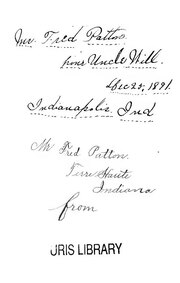 Mr. Fred Patton.
from Uncle Will.
Dec 25, 1891.
Indianapolis, Ind
Mr Fred Patton.
Terre Haute
Indiana
from
JRIS LIBRARY